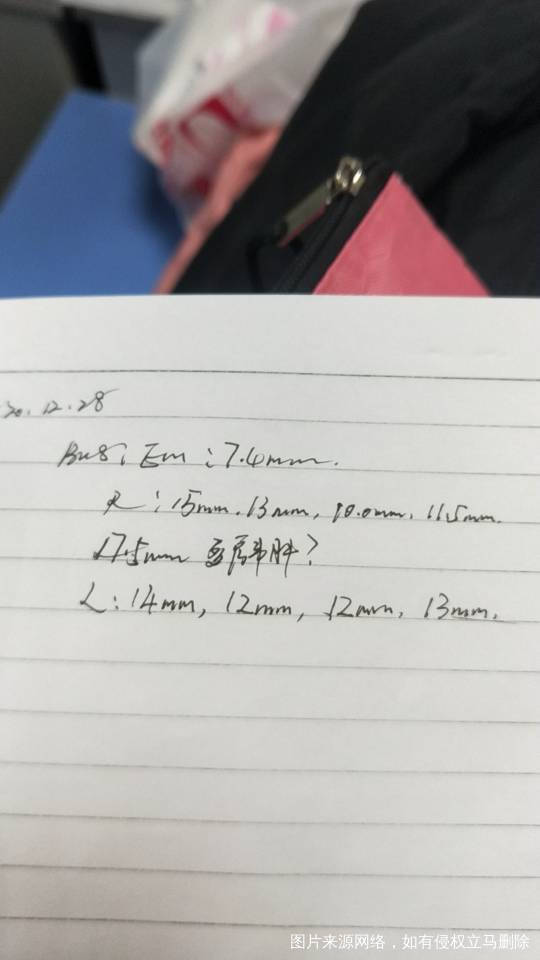 20.12.28
Bus: Em: 7.4mm.
R: 15mm. 13mm, 10.0mm. 11.5mm.
17.5mm 肿?
L: 14mm, 12mm, 12mm, 13mm.
图片来源网络，如有侵权立马删除